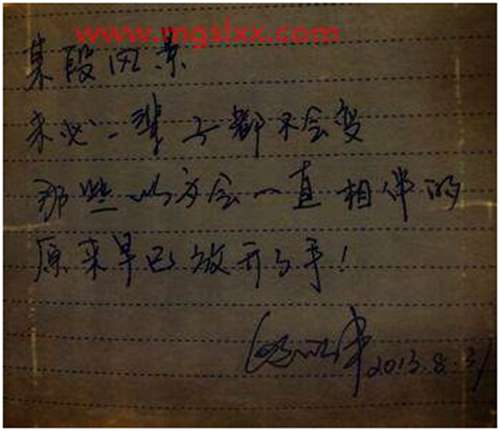 www.mgslxx.com
某段风景
未必一辈子都不会变
那些以为会一直相伴的
原来早已放开了手！
2013.8.31